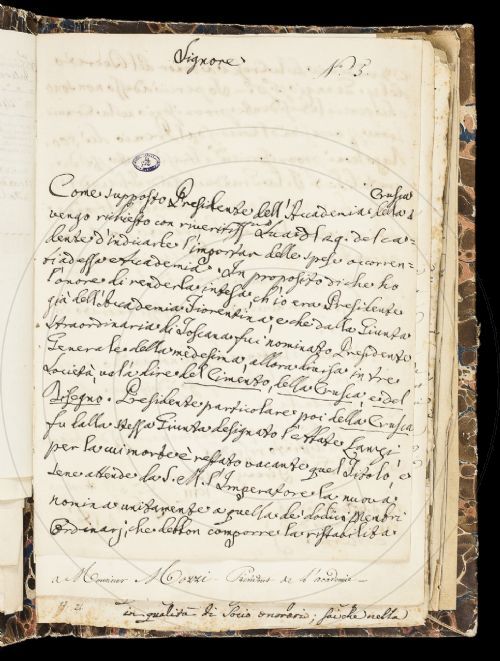 Signore
N.° 3.
Come supposto Presidente dell'Accademia della Crusca
vengo richiesto con riveritiss.ma Sua d 1 ag. del ca-
dente d'indicarle l'importar delle spese occorren-
ti a dessa Accademia. In proposito di che ho
l'onore di renderla intesa, ch'io era Presidente
già dell'Accademia Fiorentina, e che dalla Giunta
straordinaria di Toscana fui nominato Presidente
Generale della medesima, allora divisa in tre
Società, vale a dire del Cimento, della Crusca, e del
Disegno. Presidente particolare poi della Crusca
fu dalla stessa Giunta designato l'Abate Lanzi
per la cui morte è restato vacante quel Titolo, e
sene attende da S. M. l'Imperatore la nuova
nomina unitamente a quella de' dodici Membri
Ordinarj, che debbon comporre la ristabilita
a Monsieur Mozzi Président de l'académie
in qualità di Socio onorario; sàiche nella